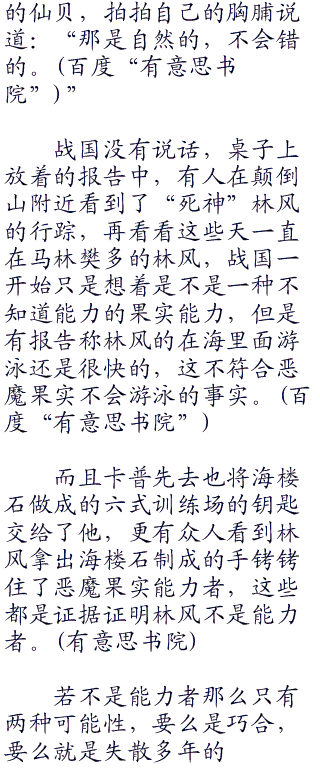 的仙贝，拍拍自己的胸脯说
道：“那是自然的，不会错
的。(百度“有意思书
院”)”
战国没有说话，桌子上
放着的报告中，有人在颠倒
山附近看到了“死神”林风
的行踪，再看看这些天一直
在马林樊多的林风，战国一
开始只是想着是不是一种不
知道能力的果实能力，但是
有报告称林风的在海里面游
泳还是很快的，这不符合恶
魔果实不会游泳的事实。(百
度“有意思书院”)
而且卡普先去也将海楼
石做成的六式训练场的钥匙
交给了他，更有众人看到林
风拿出海楼石制成的手铐铐
住了恶魔果实能力者，这些
都是证据证明林风不是能力
者。(有意思书院)
若不是能力者那么只有
两种可能性，要么是巧合，
要么就是失散多年的